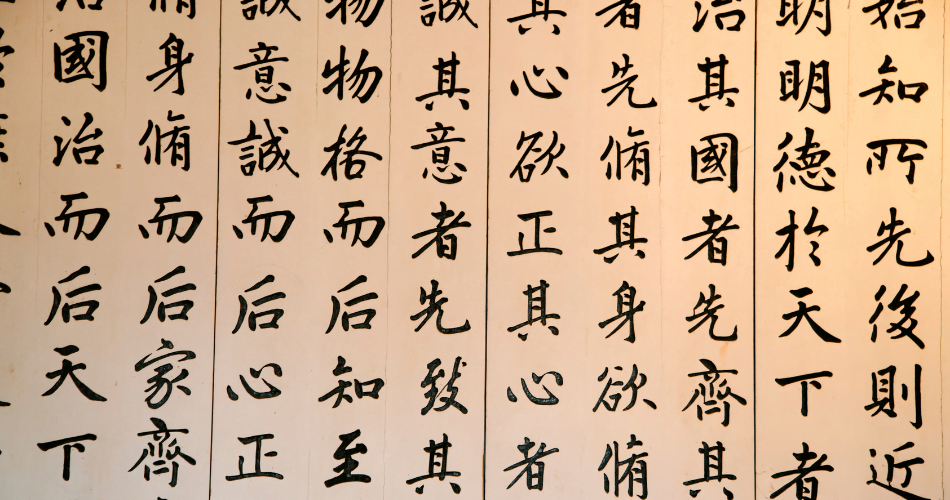 始知所先後則近
明明德於天下者
治其國者先齊其
者先脩其身欲脩
其心欲正其心者
誠其意者先致其
物物格而后知至
誠意誠而后心正
脩身脩而后家齊
治國治而后天下